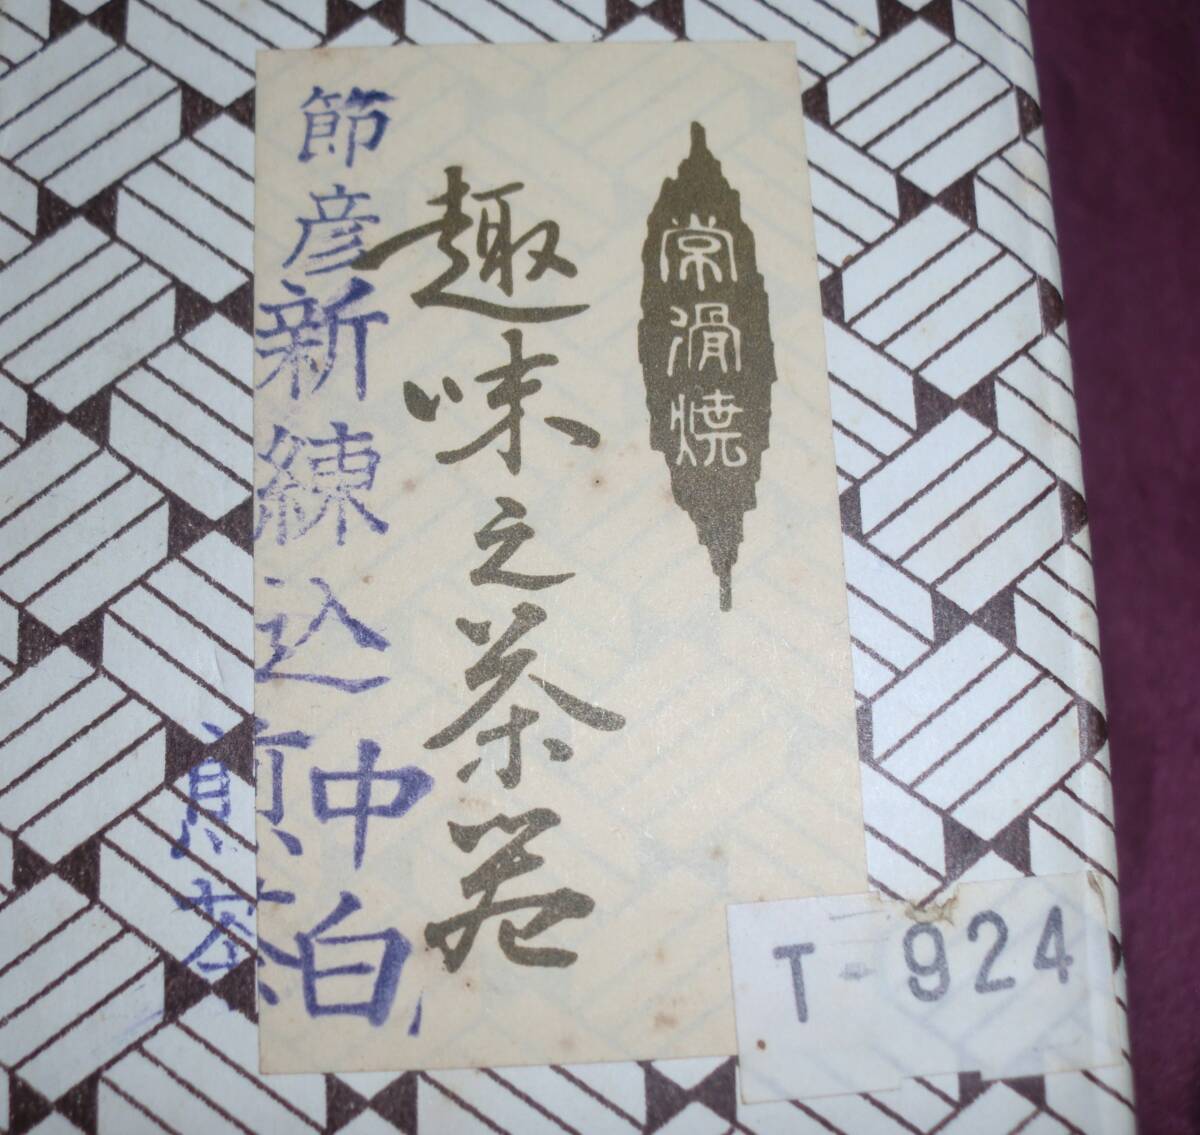 常滑焼
趣味之茶器
節彦新練込
中白
煎茶
T-924